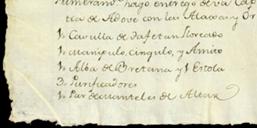 Numerando hago entrego de va Cap
tica de Adove con las Alaxas y Or
1, Casulla de tafetan floreado
1, Manipulo, Cingulo, y Amito
1, Alba de Bretana y 1 Estola
3, Purificadores
1, Par de manteles de Altar